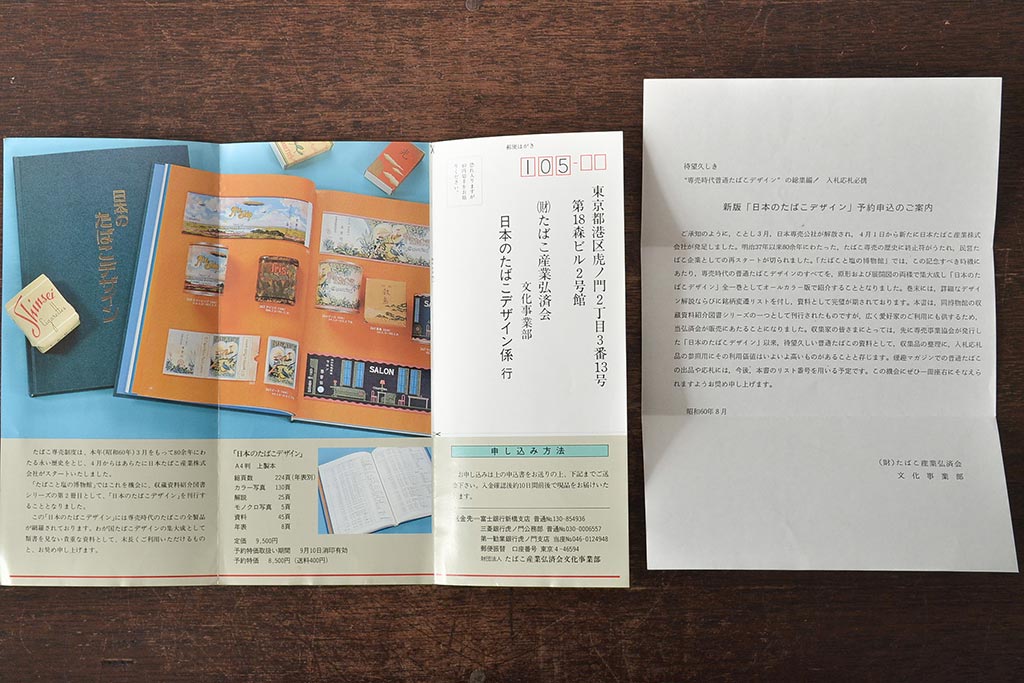 日本の
たばこデザイン
Shinsei
Cigarettes
光
SALON
たばこ専売制度は、本年(昭和60年)3月をもって80余年にわ
たる永い歴史をとじ、4月からはあらたに日本たばこ産業株式
会社がスタートいたしました。
「たばこと塩の博物館」ではこれを機会に、収蔵資料紹介図書
シリーズの第2冊目として、「日本のたばこデザイン」を刊行す
ることとなりました。
この「日本のたばこデザイン」には専売時代のたばこの全製品
が網羅されております。わが国たばこデザインの集大成として
類書を見ない貴重な資料として、末長くご利用いただけるもの
と、お奨め申し上げます。
「日本のたばこデザイン」
A4判 上製本
総頁数 224頁(年表別)
カラー写真 130頁
解説 25頁
モノクロ写真 5頁
資料 45頁
年表 8頁
定価 9,500円
予約特価取扱い期間 9月10日消印有効
予約特価 8,500円(送料400円)
郵便はがき
恐れ入りますが
40円切手をお貼
りください。
105-
東京都港区虎ノ門2丁目3番13号
第18森ビル2号館
(財)たばこ産業弘済会
文化事業部
日本のたばこデザイン係 行
申し込み方法
お申し込みは上の申込書をお送りの上、下記までご送
金下さい。入金確認後約10日間前後で現品をお届けいた
します。
送金先―富士銀行新橋支店 普通№130-854936
三菱銀行虎ノ門公務部 普通№030-0006557
第一勧業銀行虎ノ門支店 当座№046-0124948
郵便振替 口座番号 東京4-46594
財団法人 たばこ産業弘済会文化事業部
待望久しき
“専売時代普通たばこデザイン”の総集編! 入札応札必携
新版「日本のたばこデザイン」予約申込のご案内
ご承知のように、ことし3月、日本専売公社が解散され、4月1日から新たに日本たばこ産業株式
会社が発足しました。明治37年以来80余年にわたった、たばこ専売の歴史に終止符がうたれ、民営た
ばこ企業としての再スタートが切られました。「たばこと塩の博物館」では、この記念すべき時機に
あたり、専売時代の普通たばこデザインのすべてを、原形および展開図の両様で集大成し「日本のた
ばこデザイン」全一巻としてオールカラー版で紹介することとなりました。巻末には、詳細なデザイ
ン解説ならびに銘柄変遷リストを付し、資料として完璧が期されております。本書は、同博物館の収
蔵資料紹介図書シリーズの一つとして刊行されたものですが、広く愛好家のご利用にも供するため、
当弘済会が販売にあたることになりました。収集家の皆さまにとっては、先に専売事業協会が発行し
た「日本のたばこデザイン」以来、待望久しい普通たばこの資料として、収集品の整理に、入札応札
品の参照用にその利用価値はいよいよ高いものがあることと存じます。優趣マガジンでの普通たばこ
の出品や応札には、今後、本書のリスト番号を用いる予定です。この機会にぜひ一冊座右にそなえら
れますようお奨め申し上げます。
昭和60年8月
(財)たばこ産業弘済会
文化事業部